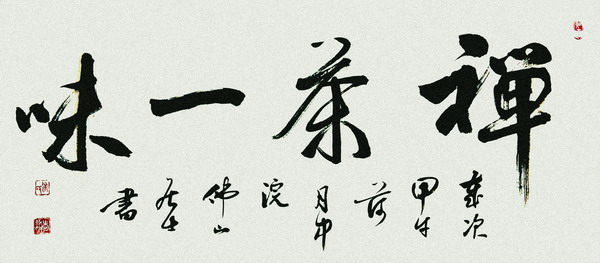 禪茶一味
歲次甲午荷月中浣佛山居士書